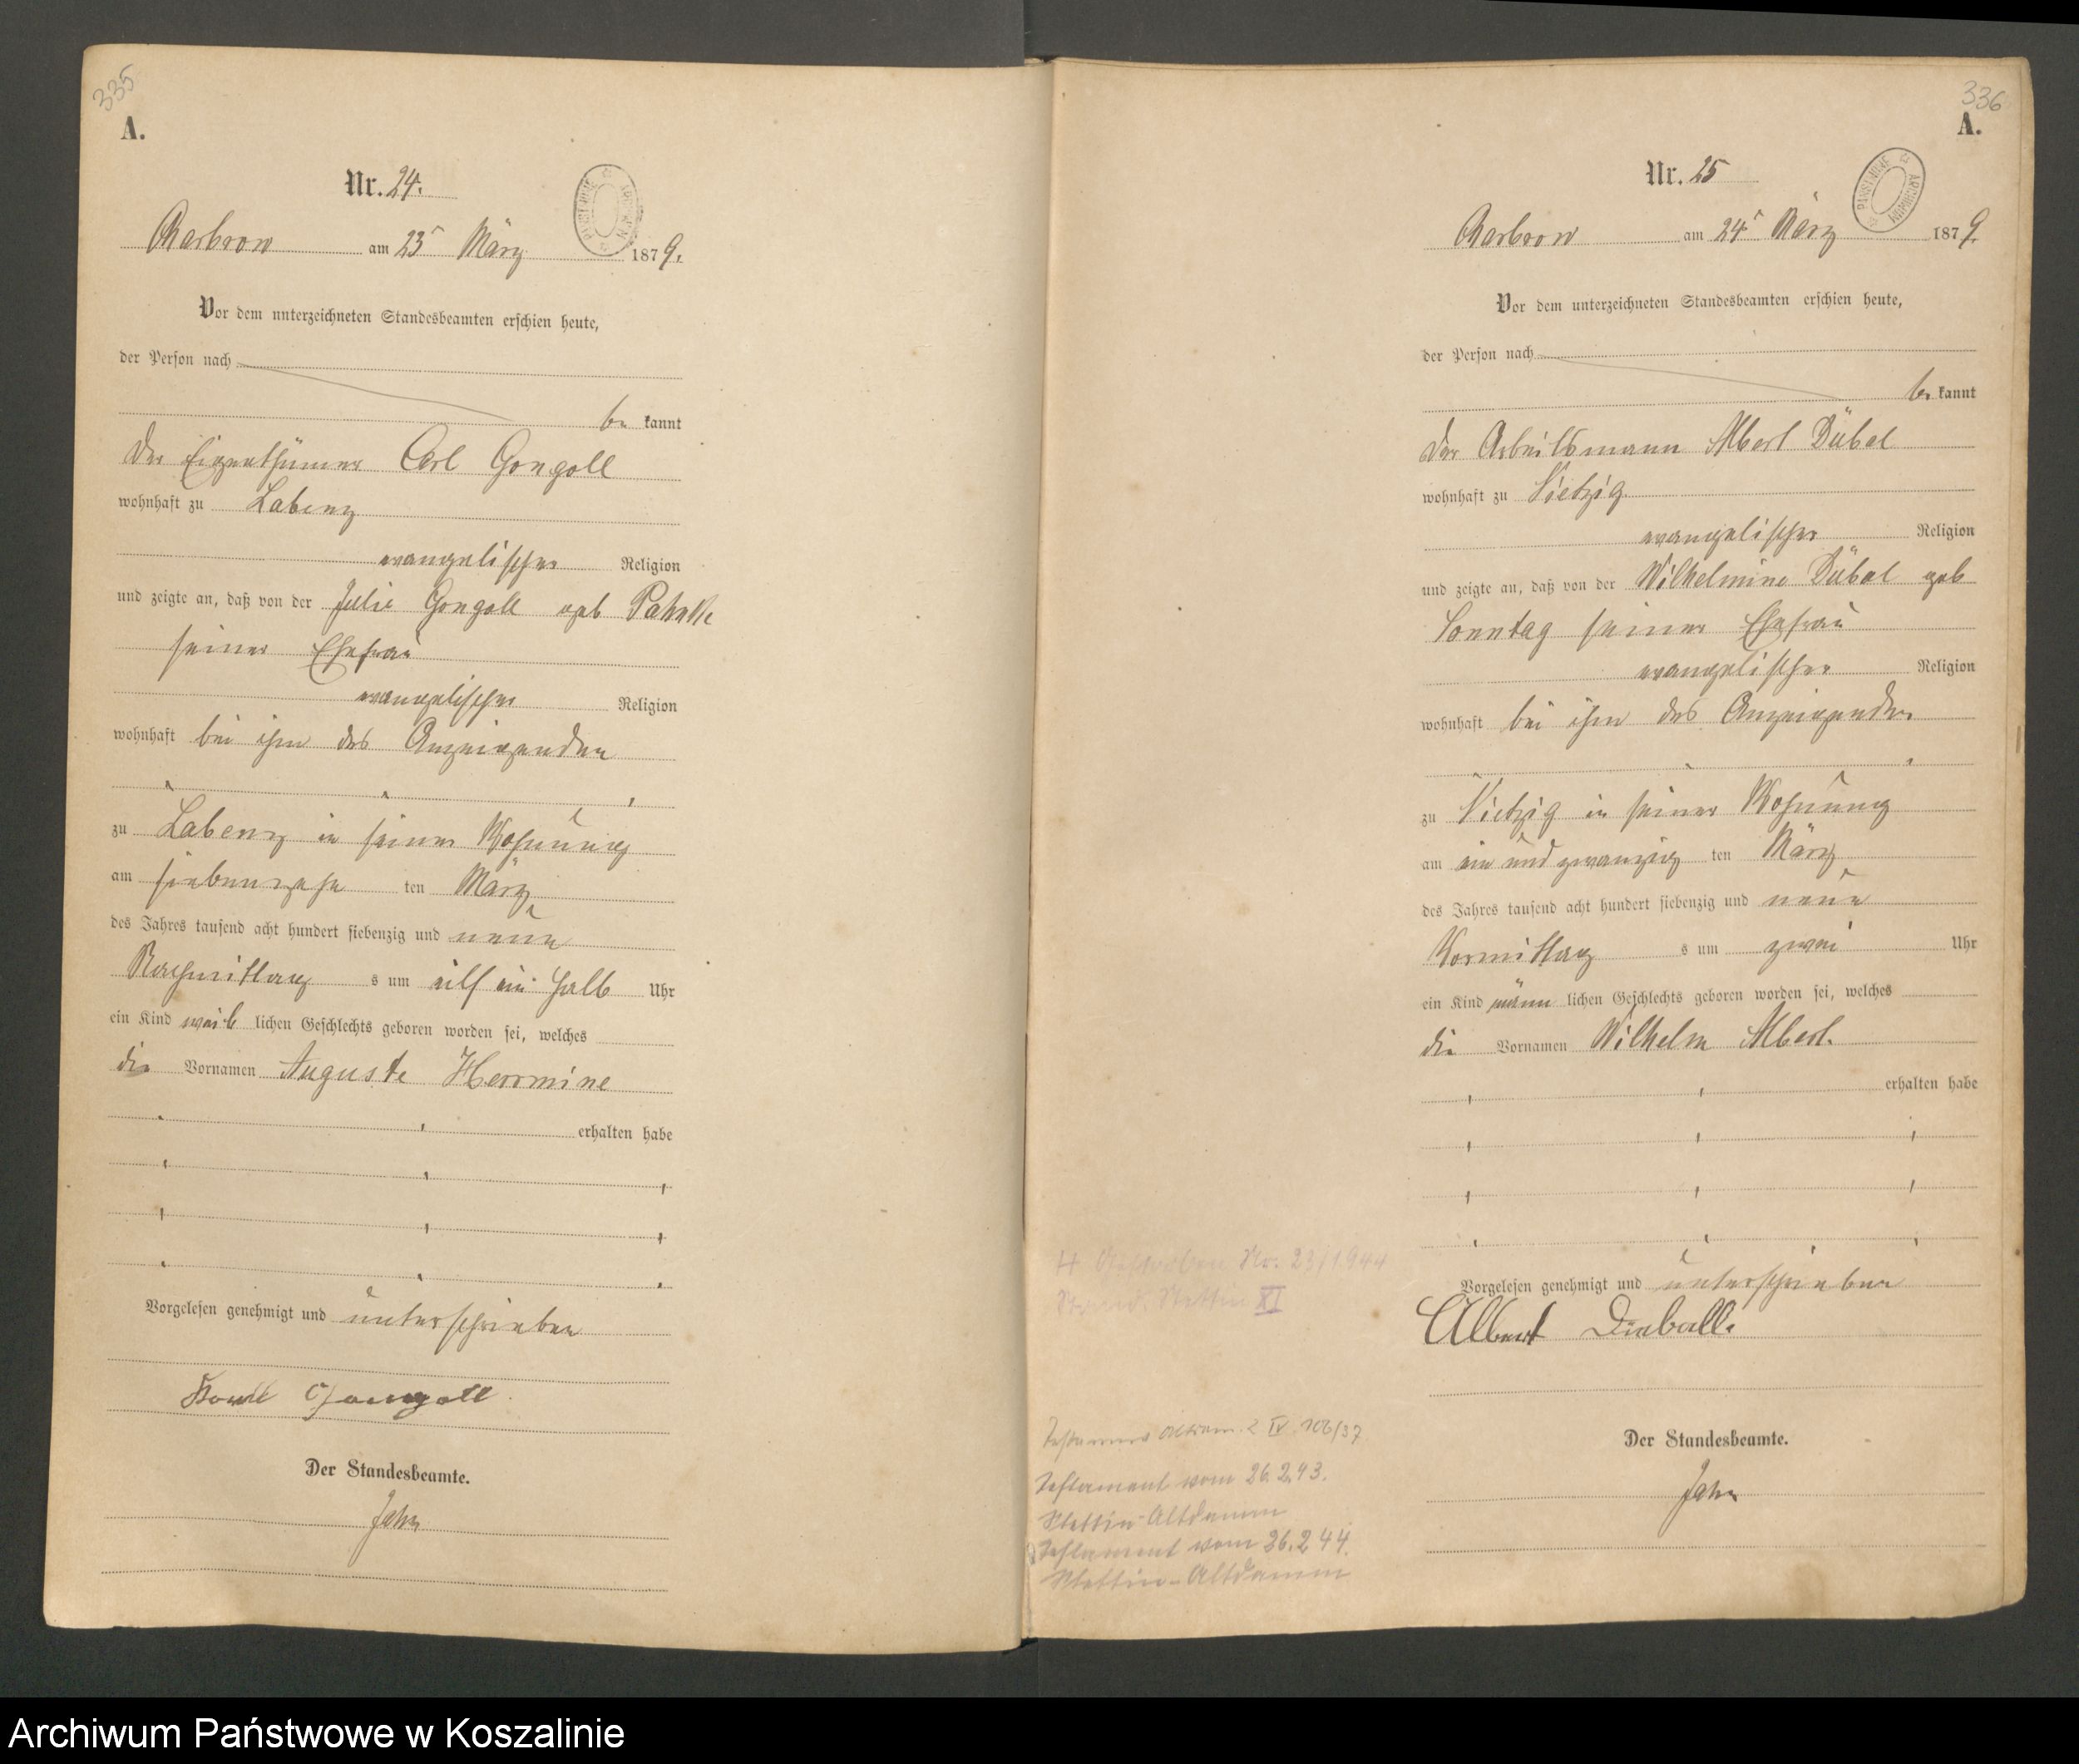 335
A.
Nr. 24.
Charbrow am 23 März 1879.
Vor dem unterzeichneten Standesbeamten erschien heute,
der Person nach
be kannt
der Eigenthümer Carl Gongoll
wohnhaft zu Labenz
evangelischer Religion
und zeigte an, daß von der Julie Gongoll geb
seiner Ehefrau
evangelischer Religion
wohnhaft bei ihm des Anzeigenden
zu Labenz in seiner Wohnung
am siebenzehn ten März
des Jahres tausend acht hundert siebenzig und neun
Nachmittag s um eilf ein halb Uhr
ein Kind weib lichen Geschlechts geboren worden sei, welches
die Vornamen Auguste Herrmine
erhalten habe
Vorgelesen genehmigt und unterschrieben
Gongoll
Der Standesbeamte.
Jahn
336
A.
Nr. 25
PAŃSTWOWE ARCHIWUM
Charbrow am 24 März 1879.
Vor dem unterzeichneten Standesbeamten erschien heute,
der Person nach
be kannt
der Arbeitsmann Albert Dübal
wohnhaft zu Vietzig
evangelischer Religion
und zeigte an, daß von der Wilhelmine Dübal geb
Sonntag seiner Ehefrau
evangelischer Religion
wohnhaft bei ihm des Anzeigenden
zu Vietzig in seiner Wohnung
am ein und zwanzig ten März
des Jahres tausend acht hundert siebenzig und neun
Vormittag s um zwei Uhr
ein Kind männ lichen Geschlechts geboren worden sei, welches
die Vornamen Wilhelm Albert.
erhalten habe
Vorgelesen genehmigt und unterschrieben
Albert Dieball.
Der Standesbeamte.
Jahn
Gestorben Nr. 23/1944
Stettin XI
IV. 106/37
Testament vom 26.2.43.
Stettin-Altdamm
Testament vom 26.2.44.
Stettin-Altdamm
Archiwum Państwowe w Koszalinie